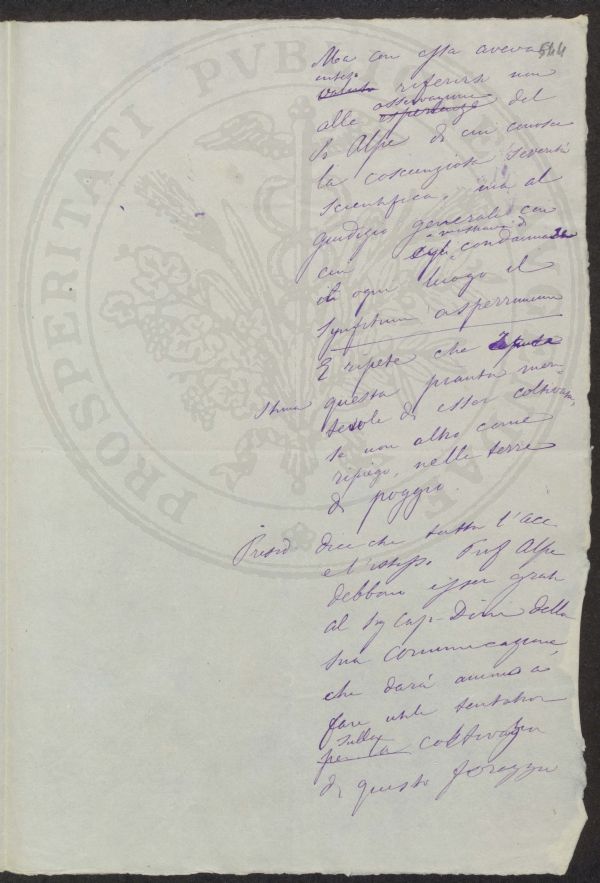 544
Ma con essa aveva
inteso
voluto riferirsi non
osservazioni
alle esperienze del
S. Alpe di cui conosce
la coscienziosa severità
scientifica, ma al
giudizio generale con
cui condannare
in ogni luogo il
Symphitum asperrimum
E ripete che
Stima questa pianta meri=
tevole di esser coltivata,
se non altro come
ripiego, nelle terre
di poggio.
Presid. dice che tutta l'Acc
e l'istesso Prof Alpe
debbono esser grati
al Sig Cap. Dini della
sua comunicazione
che darà animo a
fare utile tentativo
sulla
per la coltivazione
di questo foraggio
PROSPERITATI PVBLICAE